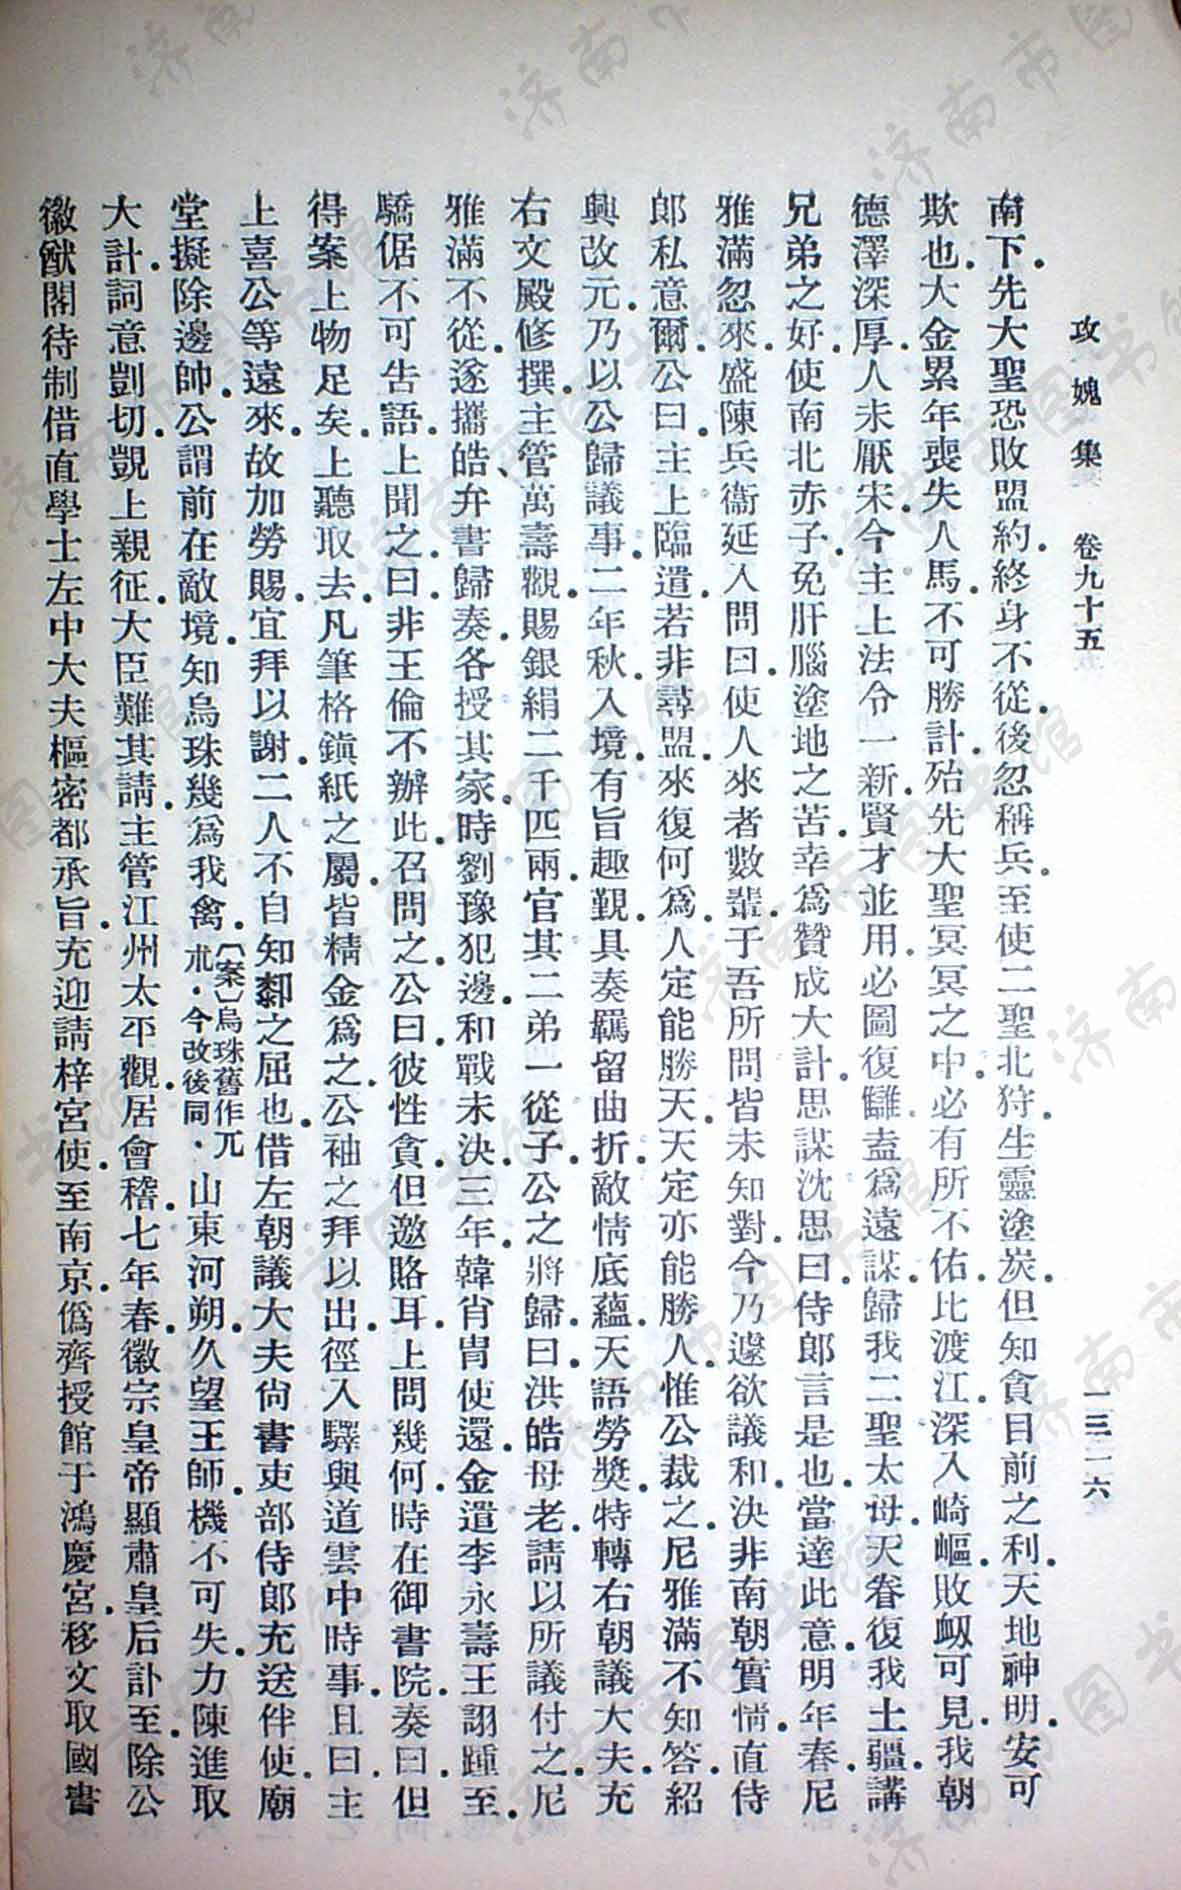 攻媿集 卷九十五 一三二六
南下.先大聖恐敗盟約.終身不從.後忽稱兵.至使二聖北狩.生靈塗炭.但知貪目前之利.天地神明.安可
欺也.大金累年喪失人馬.不可勝計.殆先大聖冥冥之中.必有所不佑.比渡江.深入崎嶇.敗衂可見.我朝
德澤深厚.人未厭宋.今主上法令一新.賢才並用.必圖復讎.盍爲遠謀.歸我二聖太母.天眷復我土疆.講
兄弟之好.使南北赤子.免肝腦塗地之苦.幸爲贊成大計.思謀沈思曰.侍郎言是也.當達此意.明年春.尼
雅滿忽來.盛陳兵衞延入.問曰.使人來者數輩.于吾所問.皆未知對.今乃遽欲議和.決非南朝實情.直侍
郎私意爾.公曰.主上臨遣.若非尋盟.來復何爲.人定能勝天.天定亦能勝人.惟公裁之.尼雅滿不知答.紹
興改元.乃以公歸議事.二年秋.入境.有旨趣覲.具奏羈留曲折.敵情底蘊.天語勞獎.特轉右朝議大夫.充
右文殿修撰.主管萬壽觀.賜銀絹二千匹兩.官其二弟一從子.公之將歸.曰.洪皓母老.請以所議付之.尼
雅滿不從.遂攜皓、弁書歸奏.各授其家.時劉豫犯邊.和戰未決.三年.韓肖胄使還.金遣李永壽王詡踵至.
驕倨不可告語.上聞之曰.非王倫不辦此.召問之.公曰.彼性貪.但邀賂耳.上問幾何.時在御書院.奏曰.但
得案上物足矣.上聽取去.凡筆格鎭紙之屬.皆精金爲之.公袖之拜以出.徑入驛.與道雲中時事.且曰.主
上喜公等遠來.故加勞賜.宜拜以謝.二人不自知厀之屈也.借左朝議大夫尙書吏部侍郎.充送伴使.廟
堂擬除邊帥.公謂前在敵境.知烏珠幾爲我禽.〔案〕烏珠舊作兀朮.今改後同.山東河朔.久望王師.機不可失.力陳進取
大計.詞意剴切.覬上親征.大臣難其請.主管江州太平觀.居會稽.七年春.徽宗皇帝顯肅皇后訃至.除公
徽猷閣待制借直學士左中大夫樞密都承旨.充迎請梓宮使.至南京.僞齊授館于鴻慶宮.移文取國書